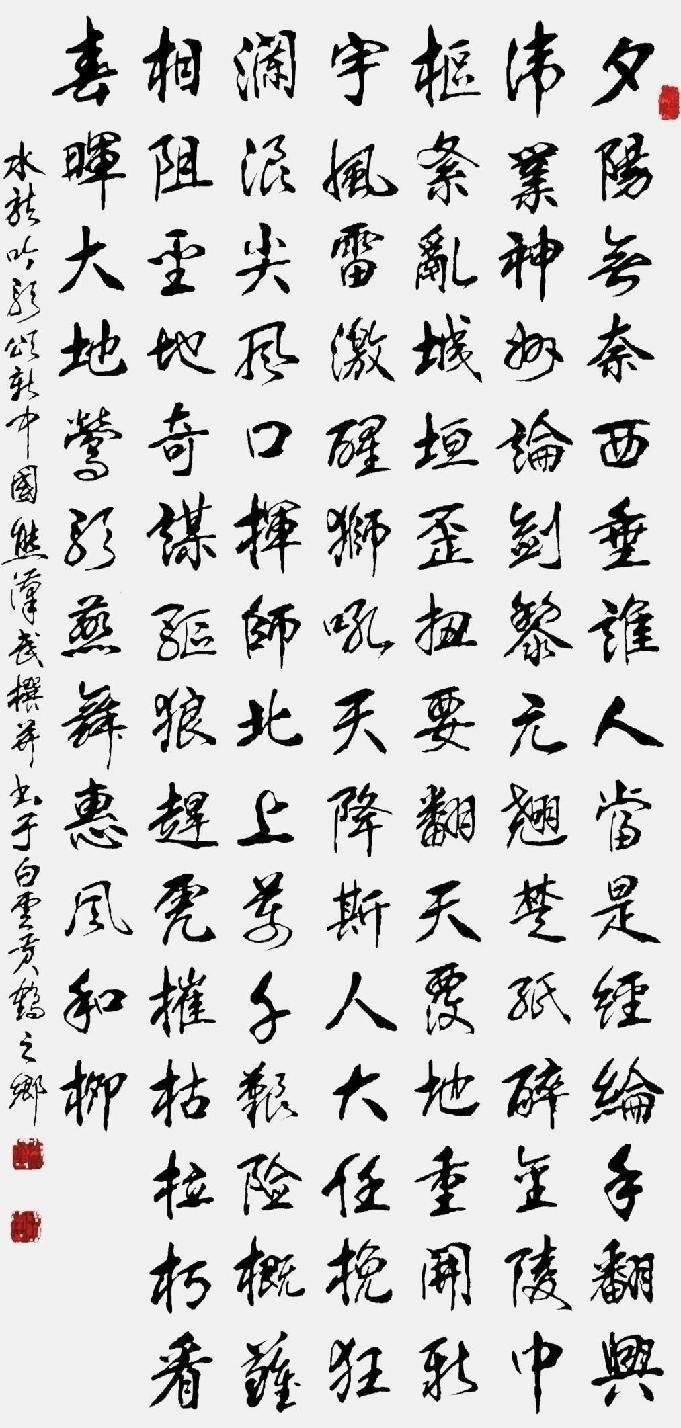 夕陽無奈西垂誰人當是經綸手翻興
伟業神州論劍黎元翹楚紙醉金陵中
樞紊亂城垣歪扭要翻天覆地重開新
宇風雷激醒獅吼天降斯人大任挽狂
瀾浪尖风口揮師北上萬千艱险概難
相阻圣地奇謀驅狼趕虎摧枯拉朽看
春暉大地鶯歌燕舞惠风和柳
水龍吟歌頌新中國熊漢武撰並書于白雲黃鶴之鄉